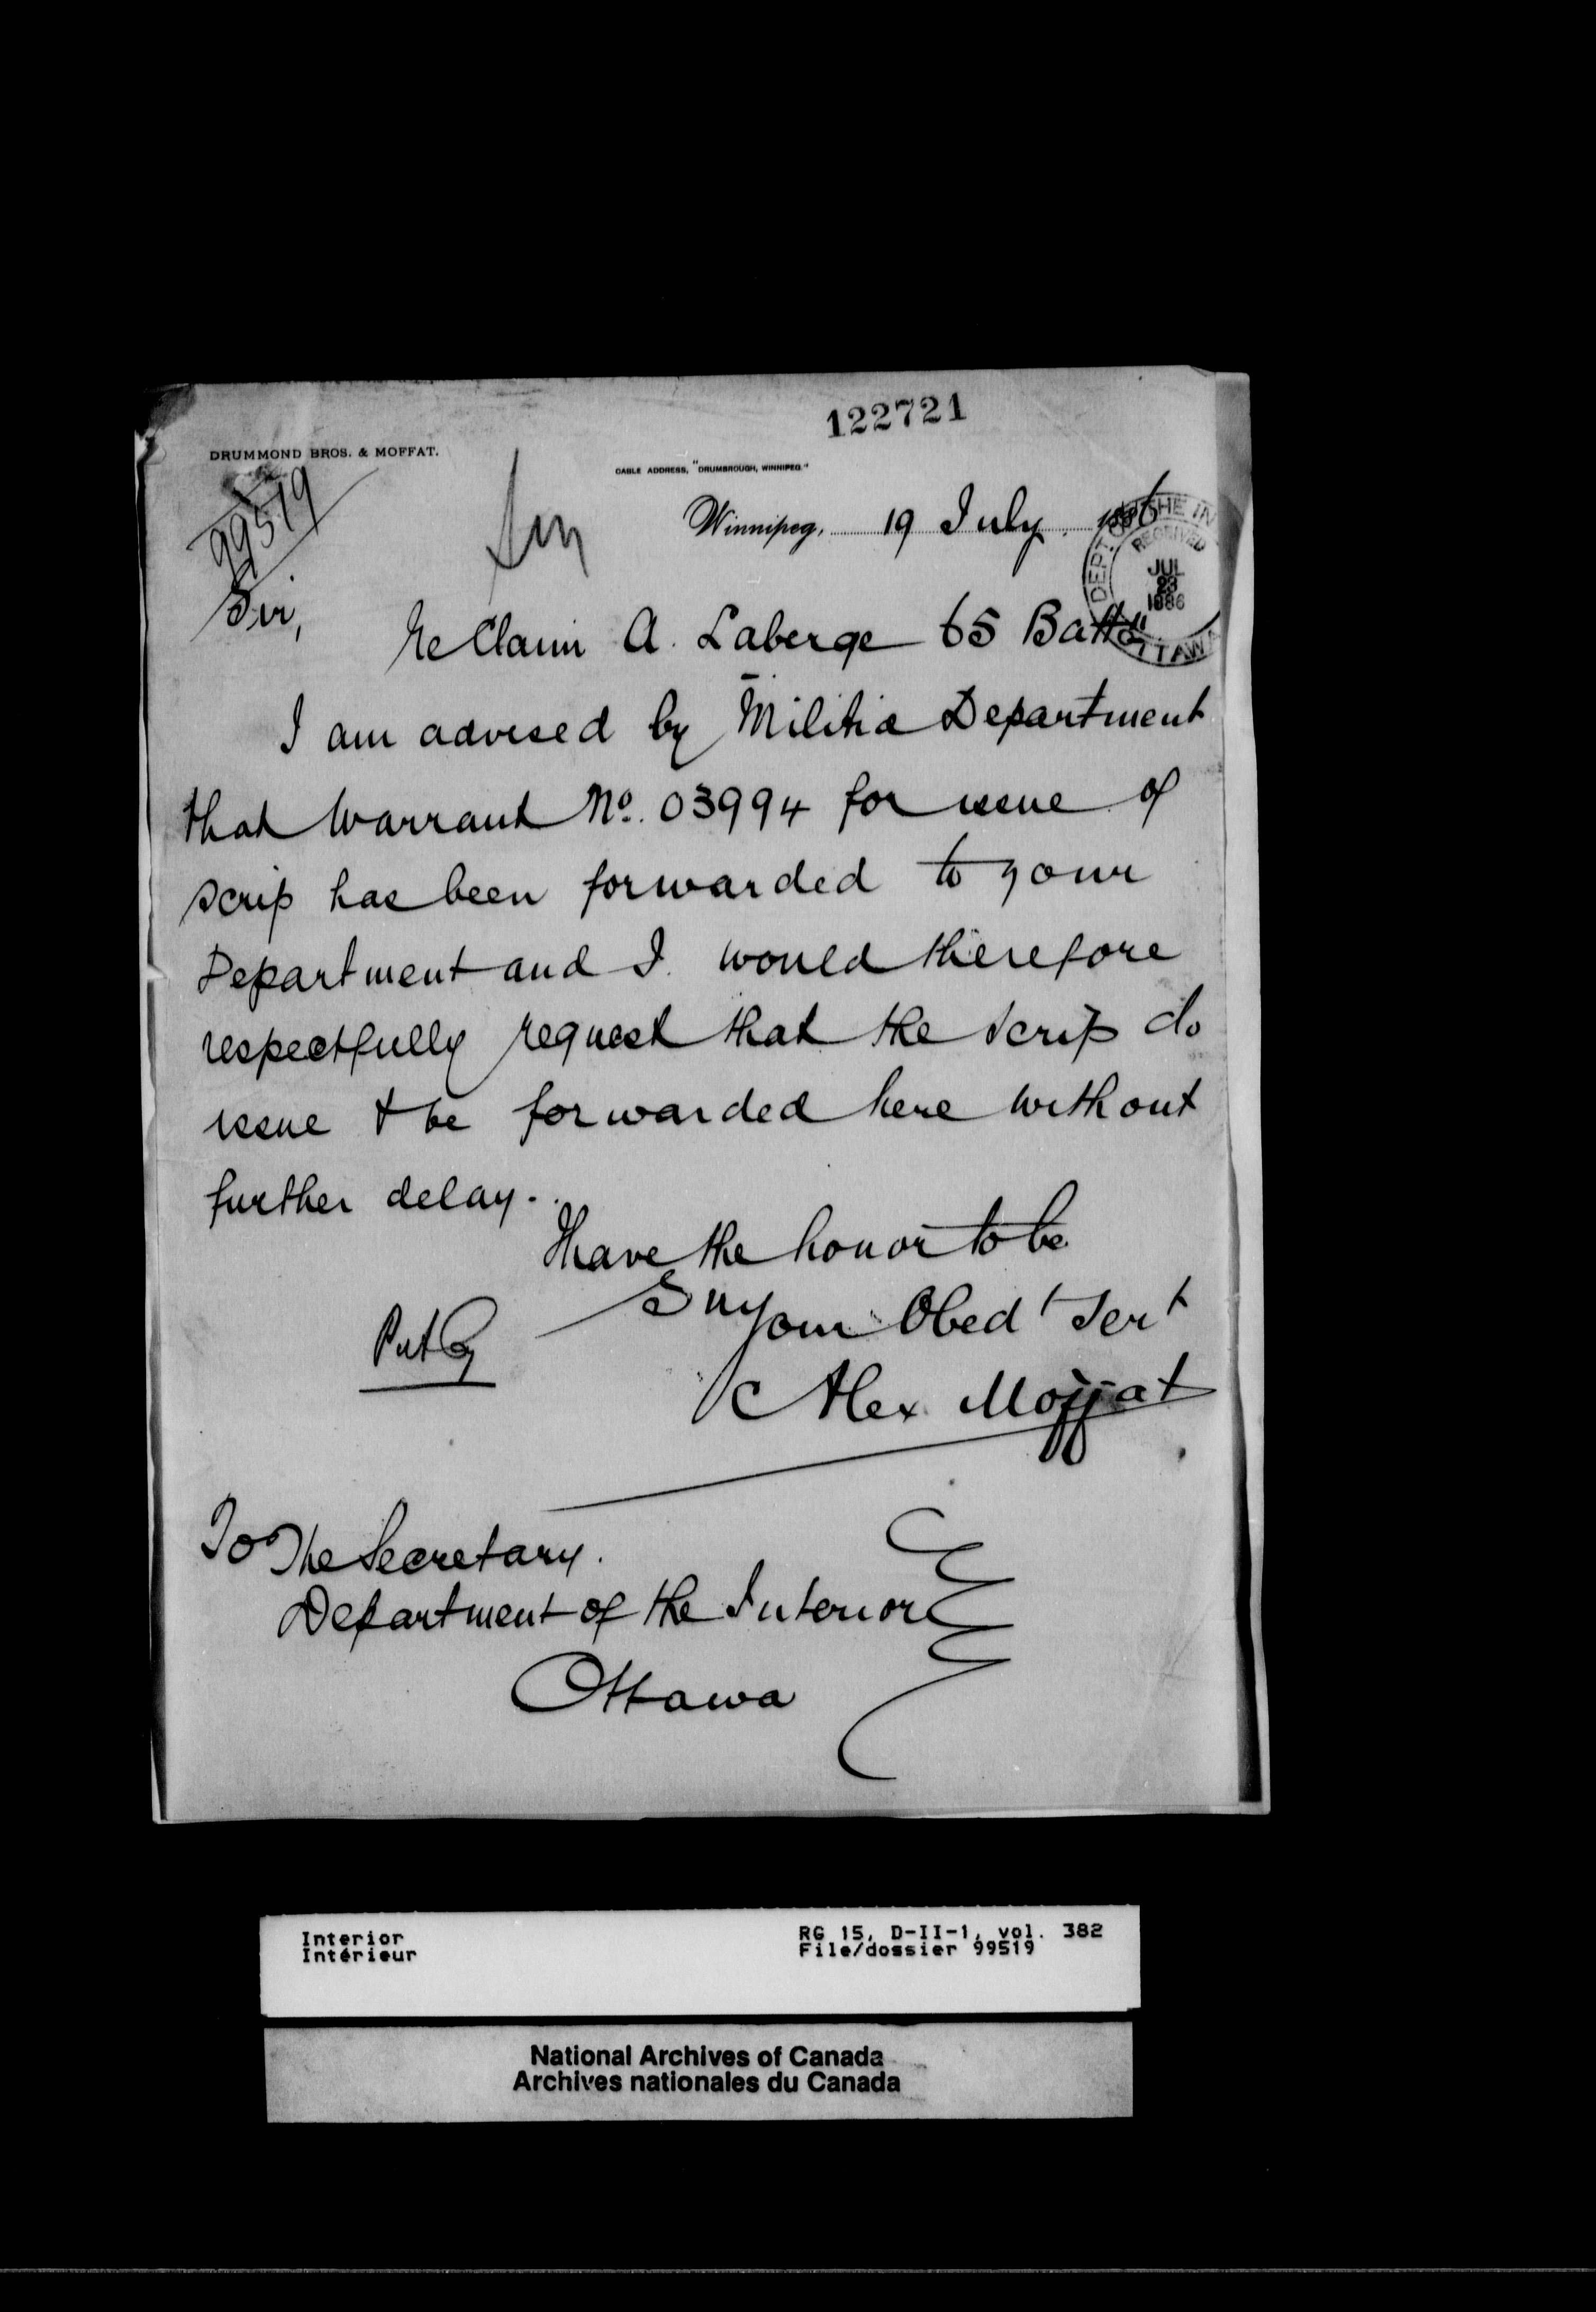 122721
DRUMMOND BROS. & MOFFAT.
CABLE ADDRESS, "DRUMBROUGH, WINNIPEG."
99519
Winnipeg, 19 July 1886
DEPT OF THE IN
RECEIVED
JUL
23
1886
OTTAWA
Sir,
Re Claim A. Laberge 65 Battn
I am advised by Militia Department
that Warrant No. 03994 for issue of
scrip has been forwarded to your
Department and I would therefore
respectfully request that the scrip do
issue & be forwarded here without
further delay.
I have the honor to be
Sir
Your Obedt Servt
Alex Moffat
To The Secretary.
Department of the Interior
Ottawa
Interior
Intérieur
RG 15, D-II-1, vol. 382
File/dossier 99519
National Archives of Canada
Archives nationales du Canada